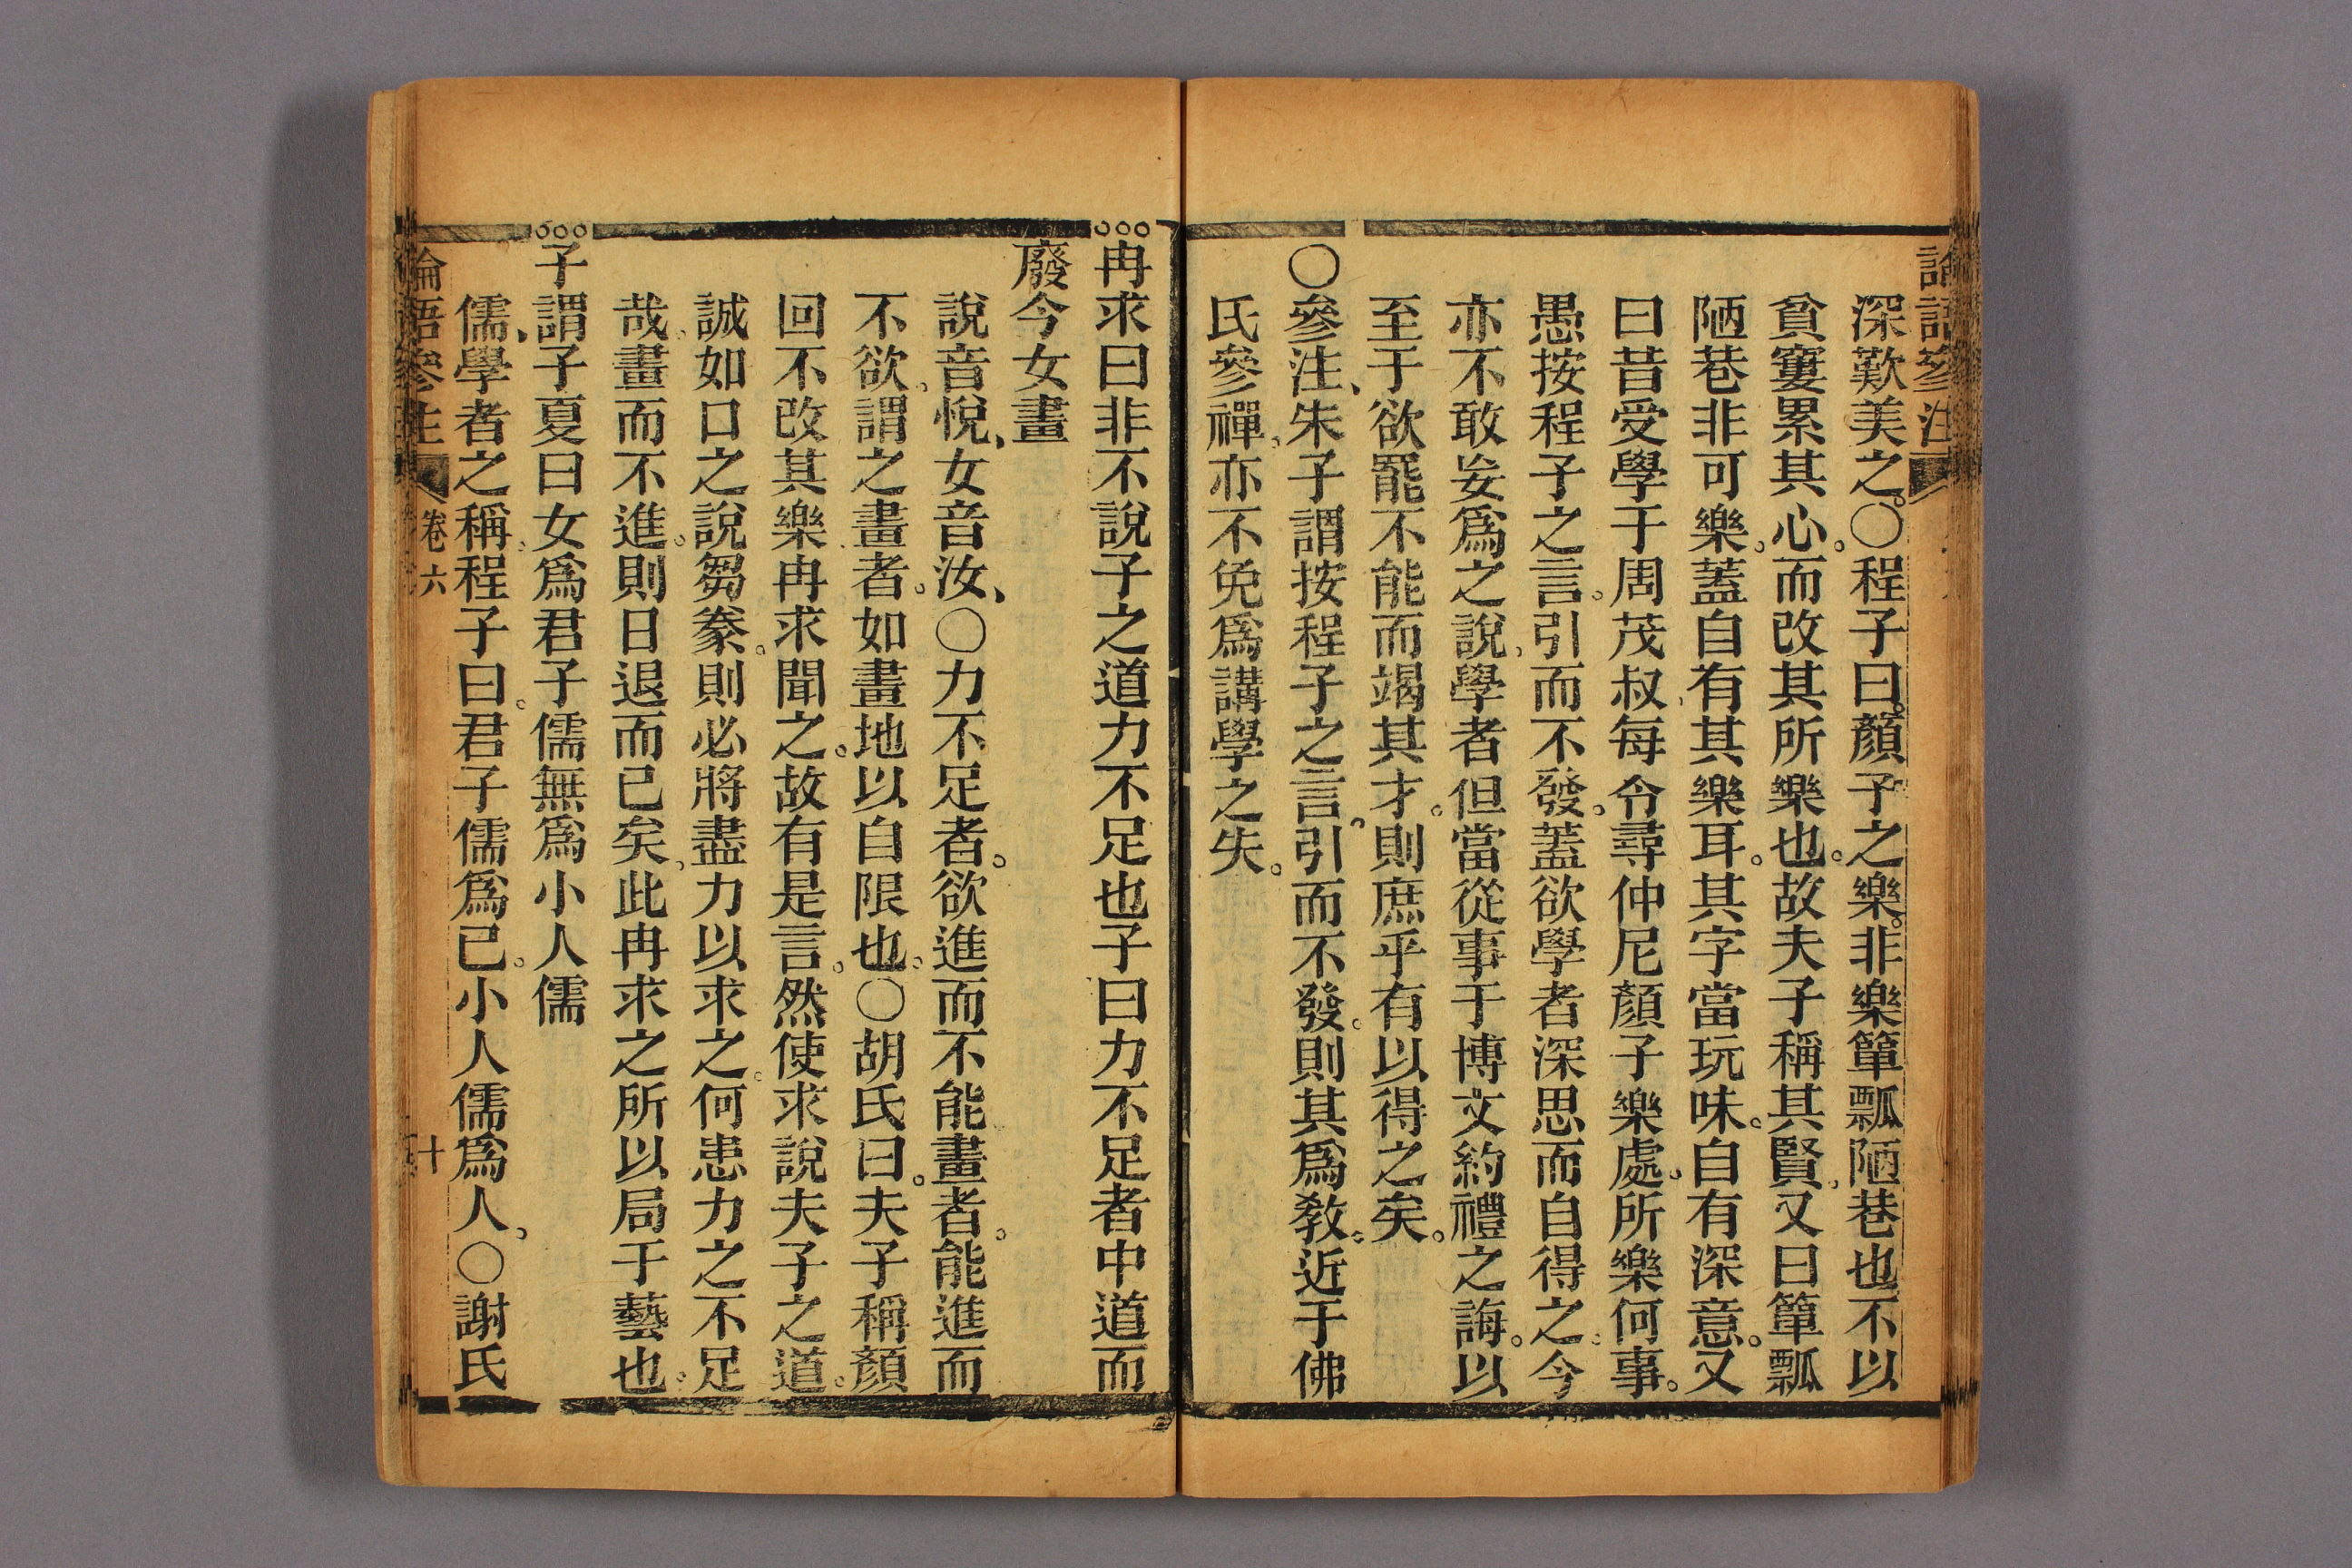 論語參注
深歎美之。〇程子曰。顏子之樂。非樂簞瓢陋巷也不以
貧窶累其心。而改其所樂也。故夫子稱其賢。又曰簞瓢
陋巷非可樂。蓋自有其樂耳。其字當玩味。自有深意。又
曰昔受學于周茂叔、每令尋仲尼顏子樂處。所樂何事。
愚按程子之言。引而不發。蓋欲學者深思而自得之。今
亦不敢妄爲之說、學者但當從事于博文約禮之誨。以
至于欲罷不能而竭其才。則庶乎有以得之矣。
〇參注、朱子謂按程子之言。引而不發。則其爲敎。近于佛
氏參禪。亦不免爲講學之失。
冉求曰非不說子之道力不足也子曰力不足者中道而
廢今女畫
說音悅、女音汝、〇力不足者。欲進而不能畫者。能進而
不欲。謂之畫者。如畫地以自限也。〇胡氏曰。夫子稱顏
回不改其樂冉求聞之。故有是言。然使求說夫子之道。
誠如口之說芻豢。則必將盡力以求之。何患力之不足
哉畫而不進。則日退而已矣、此冉求之所以局于藝也。
子謂子夏曰女爲君子儒無爲小人儒
儒、學者之稱。程子曰。君子儒爲己。小人儒爲人、〇謝氏
論語參注 卷六 十